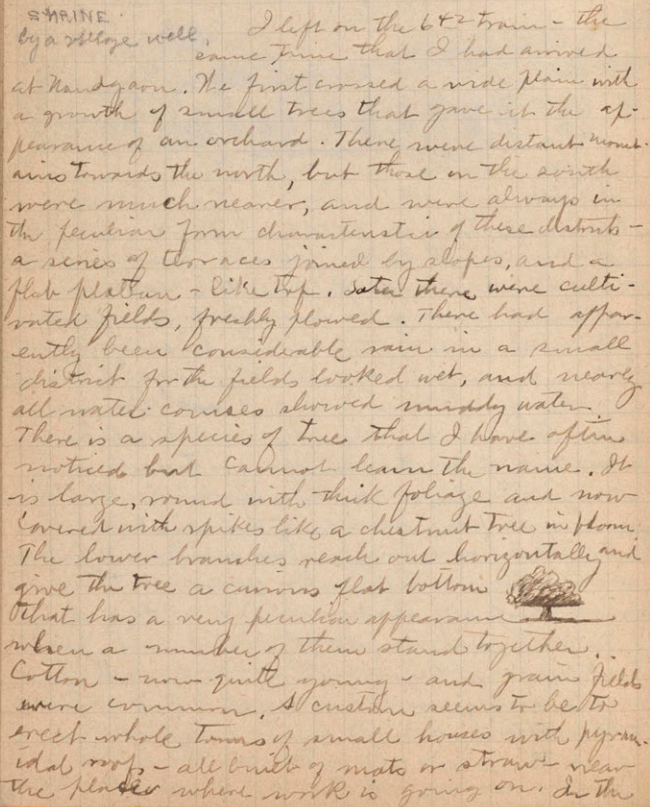 SHRINE
by a village well.
I left on the 6 42 train - the
same time that I had arrived
at Nandgaon. We first crossed a wide plain with
a growth of small trees that gave it the ap-
pearance of an orchard. There were distant mount-
ains towards the north, but those on the south
were much nearer, and were always in
the peculiar form characteristic of these districts -
a series of terraces joined by slopes, and a
flat plateau - like top. Later there were culti-
vated fields, freshly plowed. There had appar-
ently been considerable rain in a small
district for the fields looked wet, and nearly
all water courses showed muddy water.
There is a species of tree that I have often
noticed but cannot learn the name. It
is large, round with thick foliage and now
covered with spikes like a chestnut tree in bloom.
The lower branches reach out horizontally and
give the tree a curious flat bottom
that has a very peculiar appearance
when a number of them stand together.
Cotton - now quite young - and grain fields
were common. A custom seems to be to
erect whole towns of small houses with pyram-
idal roofs - all built of mats or straw near
the places where work is going on. In the